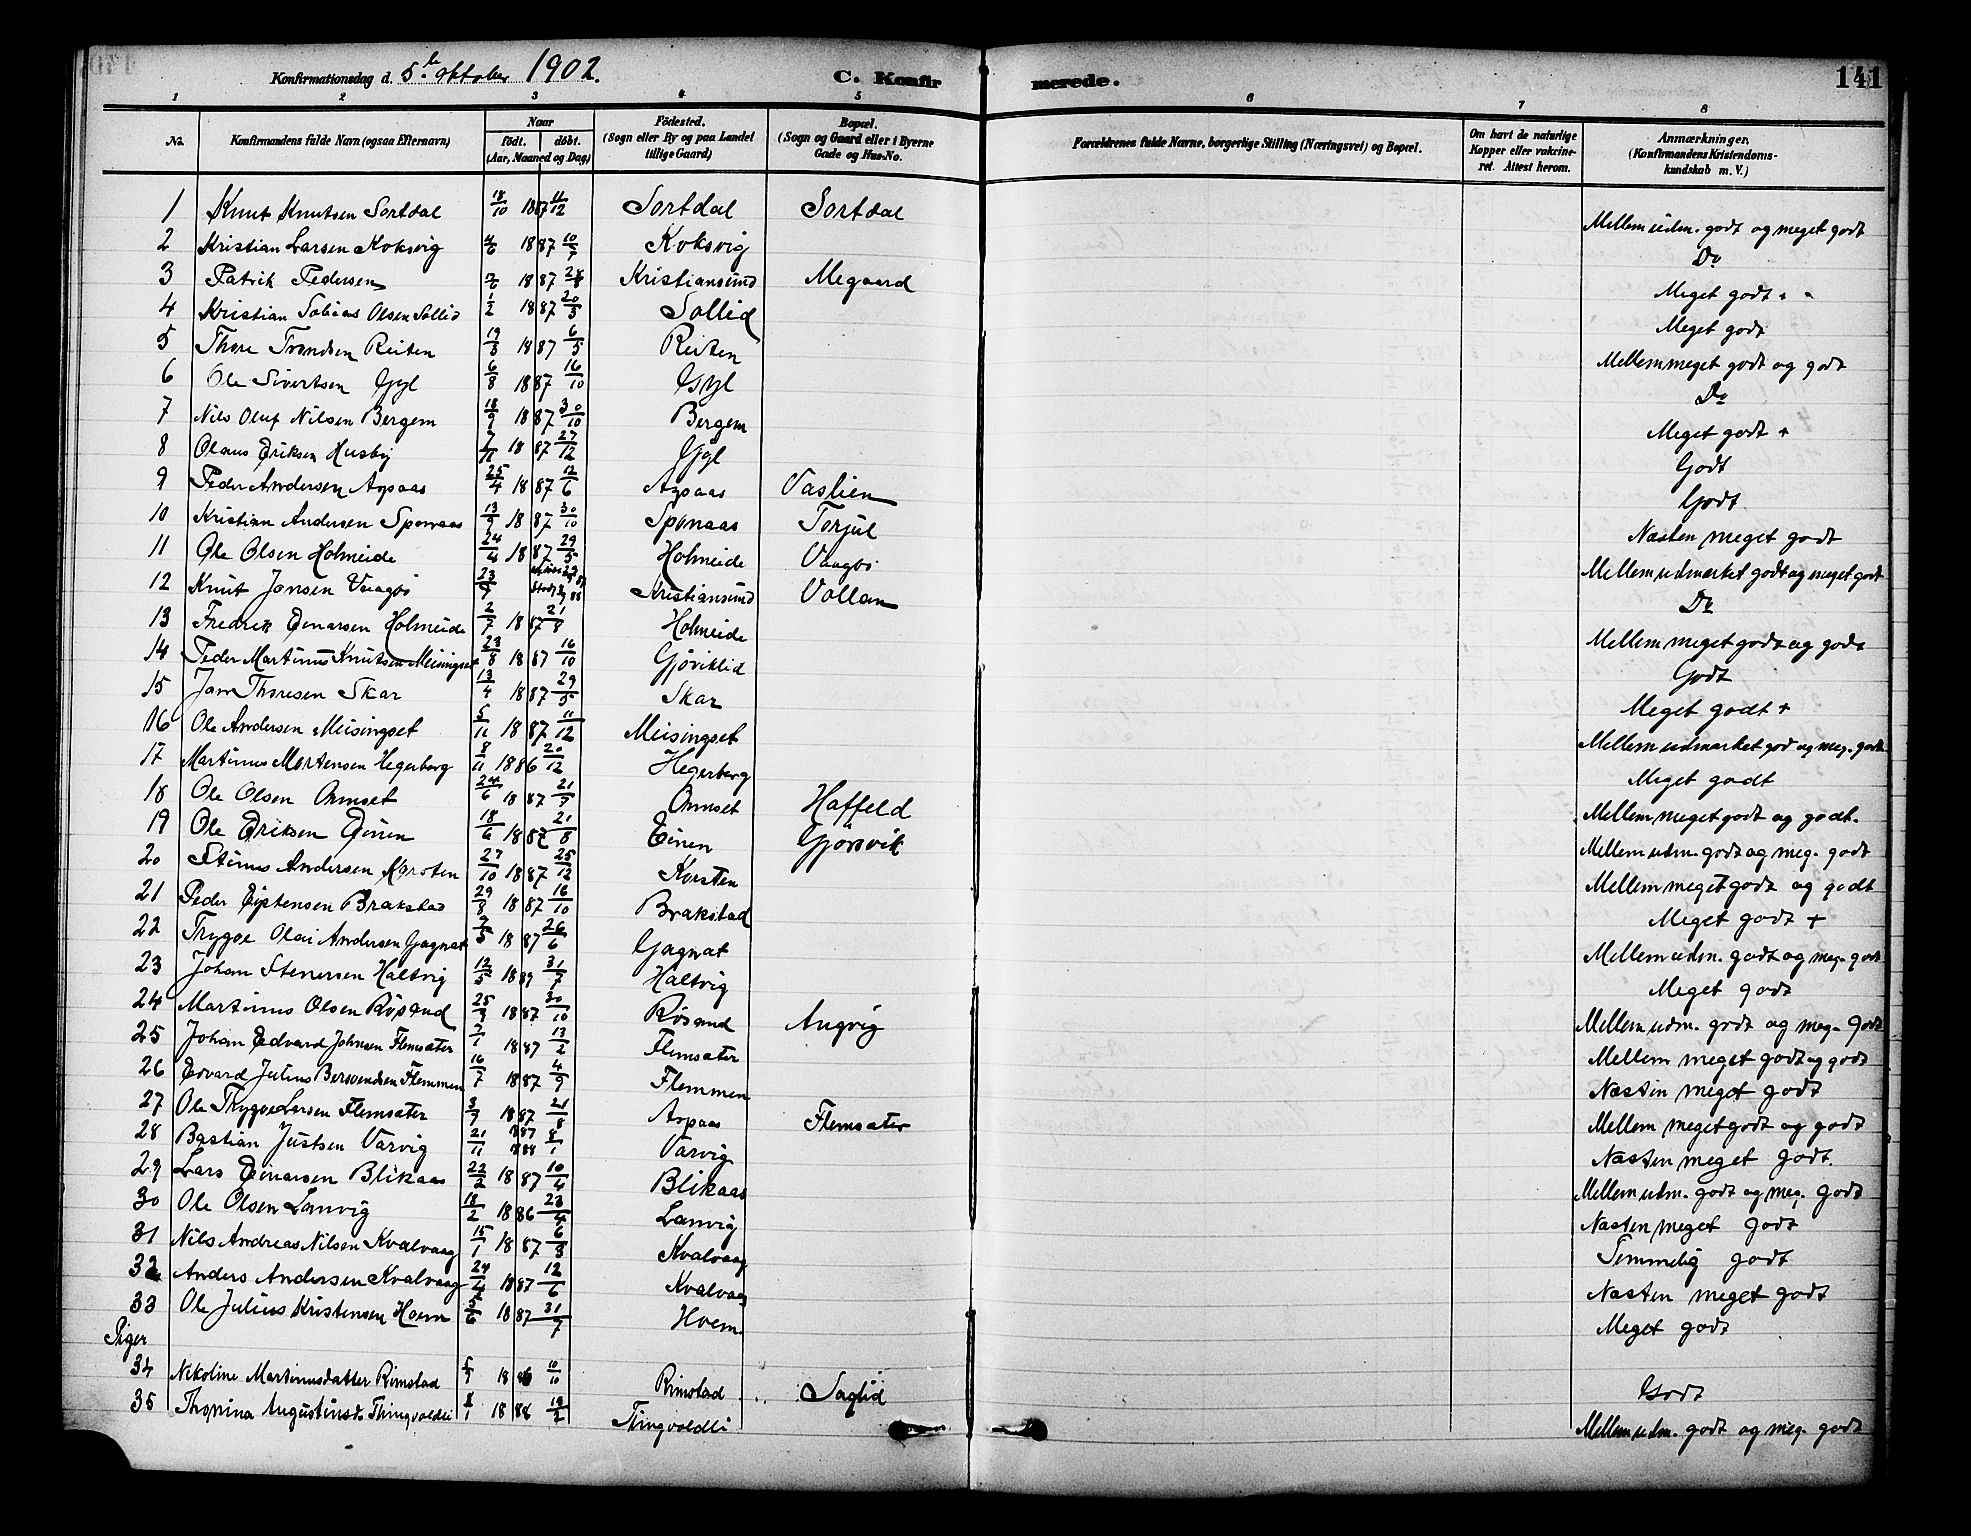 Konfirmationsdag d. 5te oktober 1902. C. Konfirmerede. 141
1 2 3 4 5 6 7 8
No. Konfirmandens fulde Navn (ogsaa Efternavn) Naar födt. döbt. (Aar, Maaned og Dag) Födested. (Sogn eller By og paa Landet tillige Gaard) Bopæl. (Sogn og Gaard eller i Byerne Gade og Hus-No. Forældrenes fulde Navne, borgerlige Stilling (Næringsvei) og Bopæl. Om havt de naturlige Kopper eller vakcineret. Attest herom. Anmærkninger. (Konfirmandens Kristendomskundskab m. V.)
1 Knut Knutsen Sortdal 18/10 1887 11/12 Sortdal Sortdal Mellem udm. godt og meget godt
2 Kristian Larsen Koksvig 1887 10/7 Koksvig Do
3 Patrik Pedersen 1887 Kristiansund Megaard Meget godt
4 Kristian Tobias Olsen Sollid 1/2 1887 20/3 Sollid Meget godt
5 Thore Trondsen Reiten 19/3 1887 6/5 Reiten Mellem meget godt og godt
6 Ole Sivertsen Gyl 6/8 1887 16/10 Gyl Do
7 Nils Oluf Nilsen Bergem 18/9 1887 30/10 Bergem Meget godt +
8 Olaus Eriksen Husby 7/11 1887 27/12 Gyl Godt
9 Peder Andersen Aspaas 25/4 1887 12/6 Aspaas Vaslien Godt
10 Kristian Andersen Sponaas 13/9 1887 30/10 Sponaas Torjul Næsten meget godt
11 Ole Olsen Holmeide 24/4 1887 29/5 Holmeide Vaagbö Mellem udmærket godt og meget godt
12 Knut Jonsen Vaagbö 23/9 Kristiansund Vollan Do
13 Fredrik Einarsen Holmeide 2/7 1887 21/8 Holmeide Mellem meget godt og godt
14 Peder Martinus Knutsen Meisingset 23/8 1887 16/10 Gjöviklid Godt
15 Jon Thoresen Skar 13/4 1887 29/5 Skar Meget godt +
16 Ole Andersen Meisingset 5/11 1887 11/12 Meisingset Mellem udmærket god og meg. godt
17 Martinus Mortensen Hegerberg 8/11 1886 20/12 Hegerberg Meget godt
18 Ole Olsen Ormset 24/6 1887 21/7 Ormset Haffeld Mellem meget godt og godt.
19 Ole Eriksen Einen 18/6 1887 21/8 Einen Gjörsvik Mellem udm. godt og meg. godt
20 Stinus Andersen Korsten 27/10 1887 25/12 Korsten Mellem meget godt og godt
21 Peder Eystensen Brakstad 29/8 1887 16/10 Brakstad Meget godt +
22 Trygve Olai Andersen Gagnat 7/5 1887 26/6 Gagnat Mellem udm. godt og meg. godt
23 Johan Stenersen Haltvig 12/5 31/7 Haltvig Meget godt
24 Martinus Olsen Rösand 25/9 1887 30/10 Rösand Angvig Mellem udm. godt og meg. godt
25 Johan Edvard Johnsen Flemsæter 7/1 1887 13/2 Flemsæter Mellem meget godt og godt
26 Edvard Julius Bersvendsen Flemmen 16/7 1887 4/9 Flemmen Næsten meget godt
27 Ole Trygve Larsen Flemsæter 3/7 1887 21/8 Aspaas Flemsæter Mellem meget godt og godt
28 Bastian Justsen Varvig 21/11 1887 1888 8/1 Varvig Næsten meget godt.
29 Lars Einarsen Blikaas 22/2 1887 10/4 Blikaas Mellem udm. godt og meg. godt
30 Ole Olsen Lanvig 18/2 1886 23/4 Lanvig Næsten meget godt
31 Nils Andreas Nilsen Kvalvaag 15/1 1887 6/3 Kvalvaag Temmelig godt
32 Anders Andersen Kvalvaag 24/4 1887 12/6 Kvalvaag Næsten meget godt
33 Ole Julius Kristensen Hoem 5/6 1887 31/7 Hoem Meget godt
Piger
34 Nikoline Martinusdatter Rimstad 1886 10/10 Rimstad Saglid Godt
35 Augustinsd. Thingvoldli 8/1 1888 Tingvoldli Mellem udm. godt og meg. godt